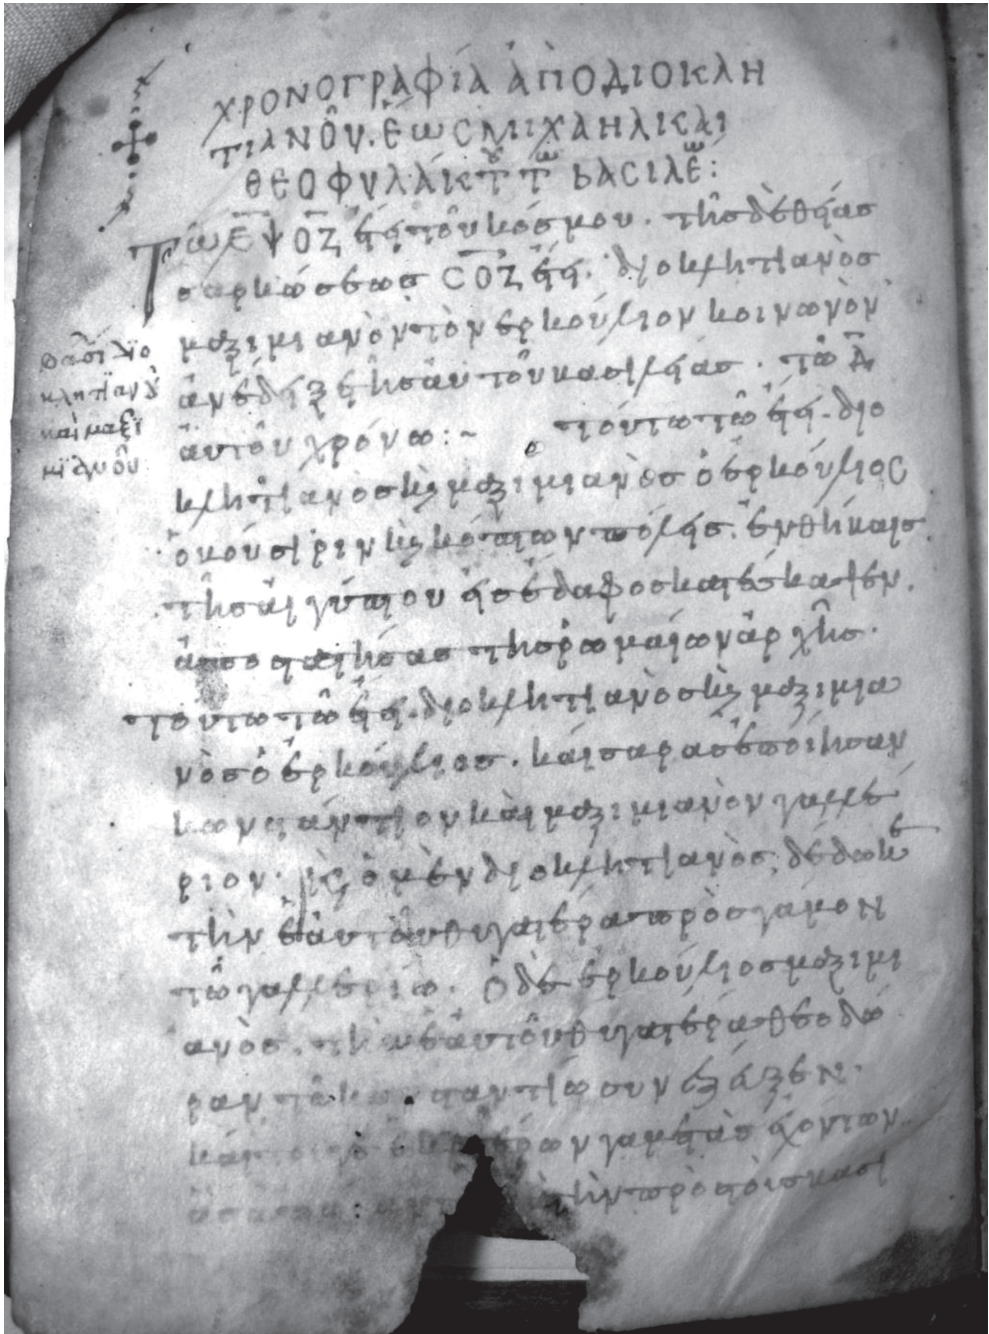 ΧΡΟΝΟΓΡΑΦΊΑ ἈΠΟΔΙΟΚΛΗ
ΤΙΑΝΟΥ͂. ἝΩΣ ΜΙΧΑΗΛ ΚΑΙ
ΘΕΟΦΥΛΆΚΤΟΥ ΤΩ͂ ΒΑΣΙΛΕΩ͂:
Τῶ ͵ΕΨΟΖ ἔτει τοῦ κόσμου. τῆς δὲ θείας
σαρκώσεως ΣΟΖ ἔτει. διοκλητϊανὸς
μαξιμιανὸν τὸν ἑρκούλιον κοινωνὸν
ἀνέδειξε τῆς αὐτοῦ βασιλείας. τῶ Δ
αὐτοῦ χρόνω:~ τούτω τῶ ἔτει. διο
κλητϊανὸς καὶ μαξιμιανὸς ὁ ἑρκούλιος
κλητϊανὸς
βασιλεία διο
κλητϊανοῦ
καὶ μαξϊ
μϊανοῦ
τῆς αἰγύπτου εἰς ἔδαφος κατέσκαψεν.
ἀποστατήσας τῆς ῥωμαίων ἀρχῆς.
τούτω τῶ ἔτει. διοκλητϊανὸς καὶ μαξιμια
νὸς ὁ ἑρκούλιος. καίσαρας ἐποίησαν
κωνστάντιον καὶ μαξιμιανὸν γαλλέ
ριον. καὶ ὁ μὲν διοκλητϊανὸς. δέδωκε
τὴν ἑαυτοῦ θυγατέρα πρὸς γάμον
τῶ γαλλερίω. Ὁ δὲ ἑρκούλιος μαξιμι
ανὸς. τὴν ἑαυτοῦ θυγατέρα θεοδώ
ραν τῶ κωνσταντίω συνέζευξεν.
γαμετὰς ἐχόντων
τὴν πρὸς τοὺς βασι